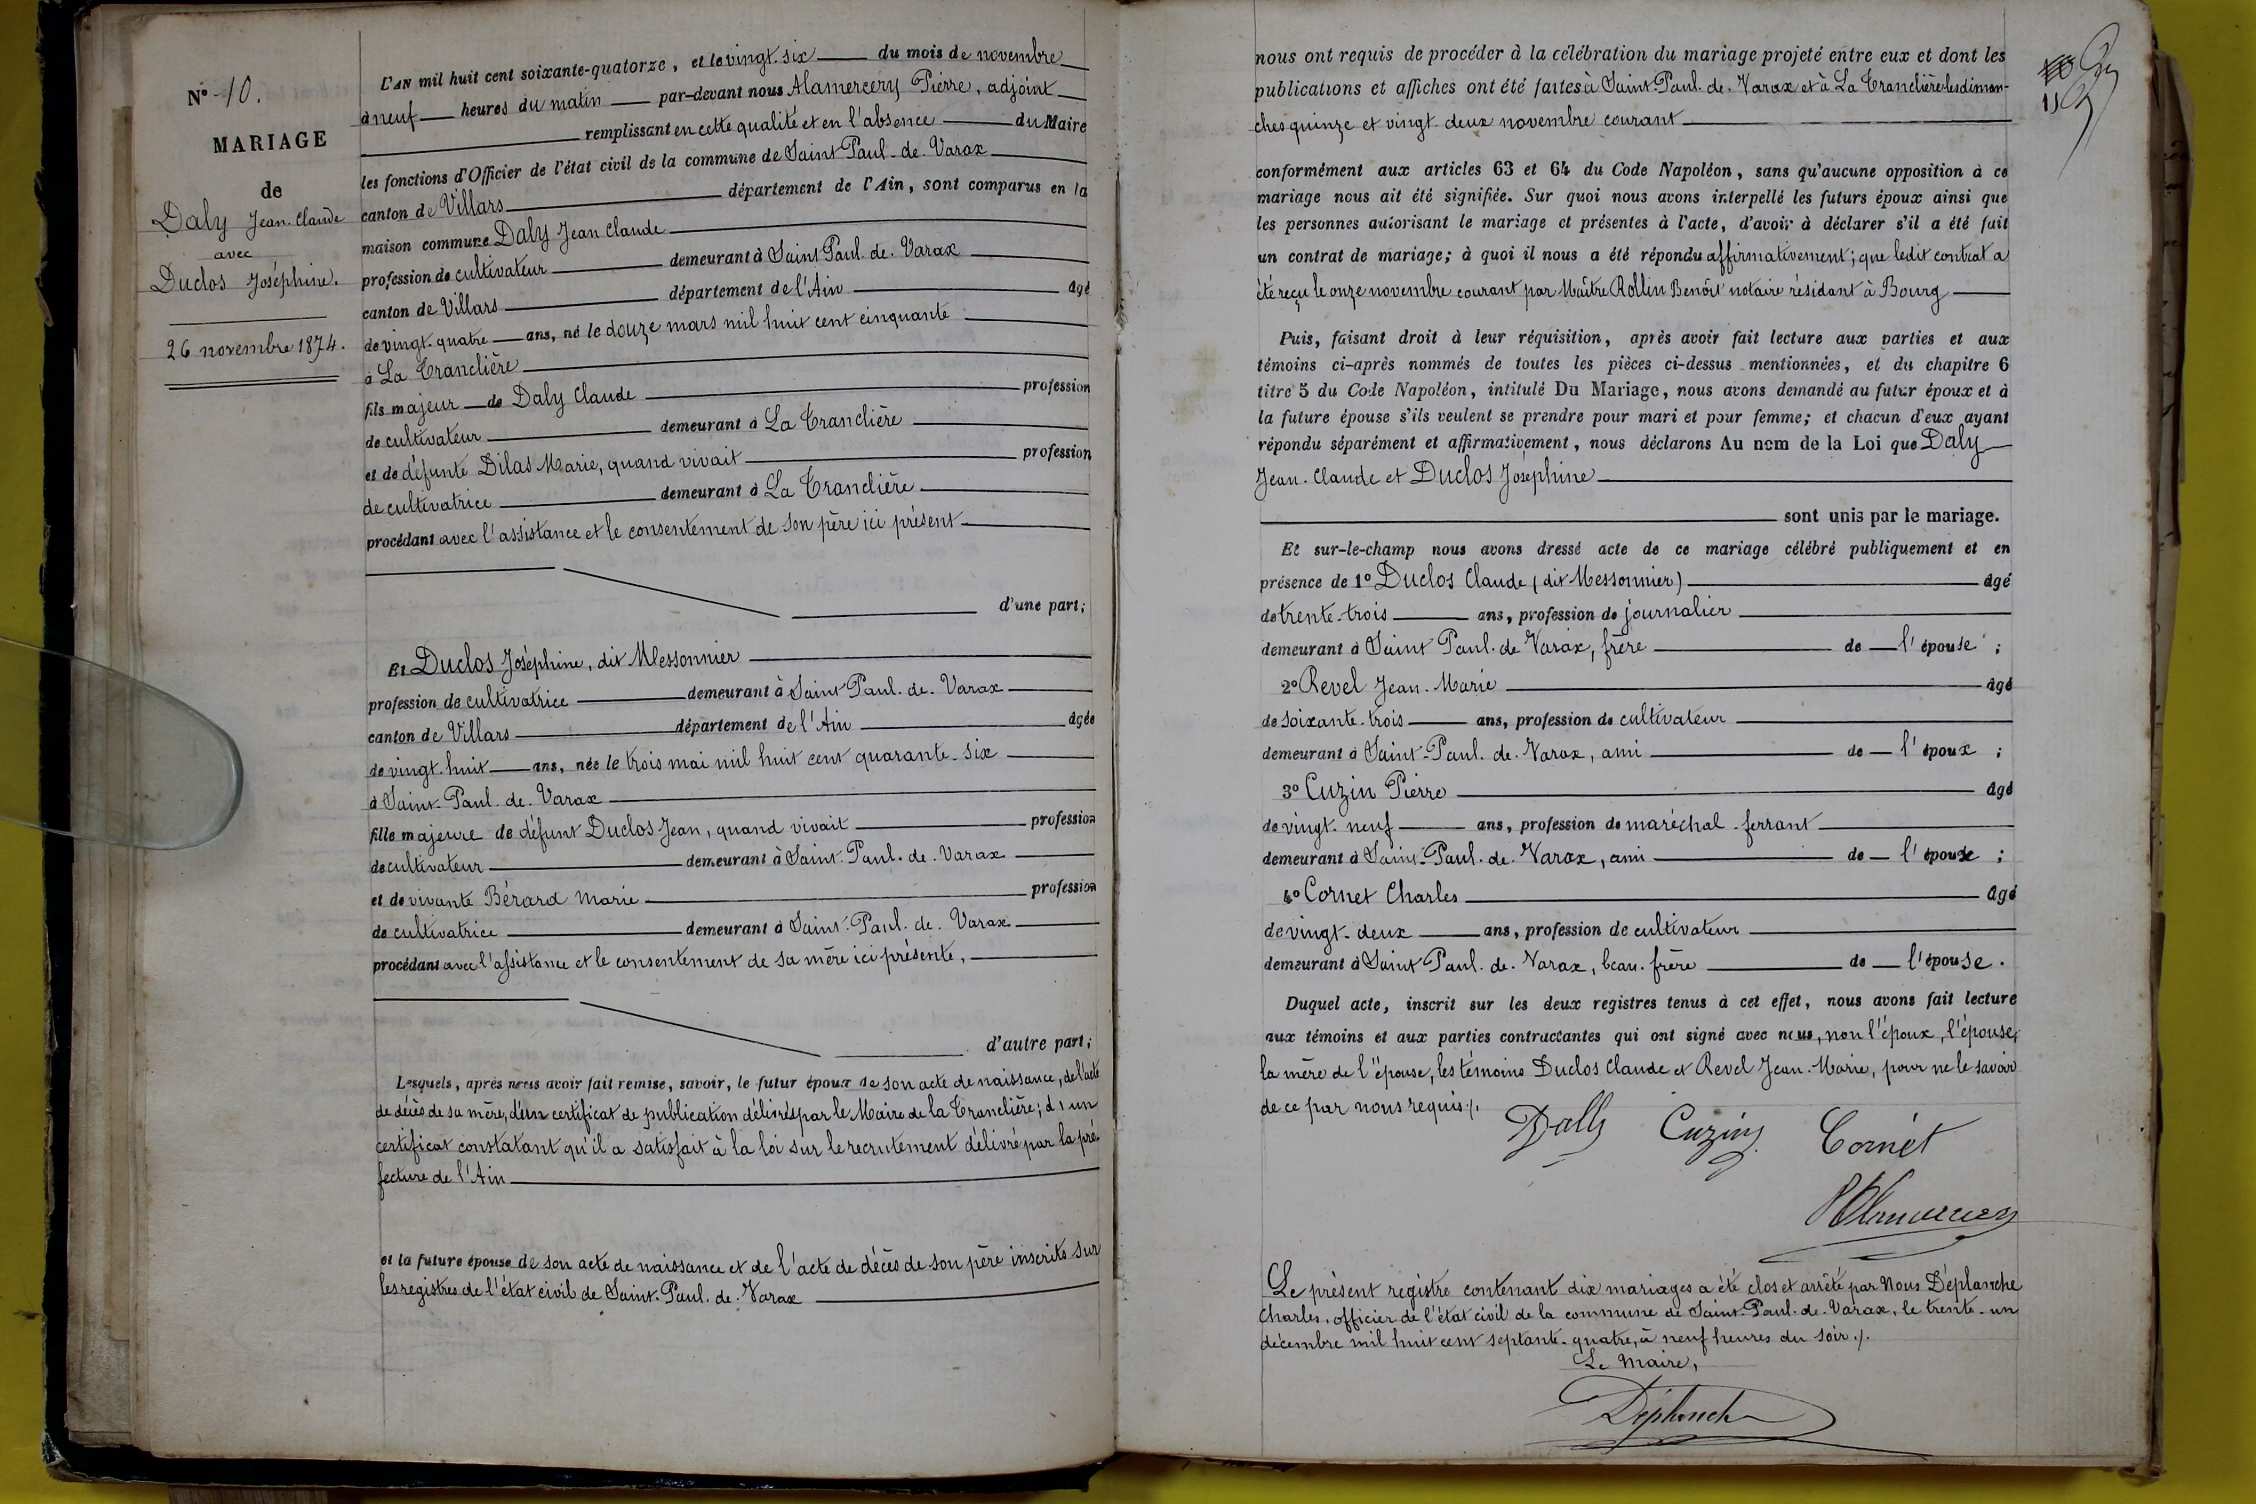 N° 10.
MARIAGE
de
Daly Jean-Claude
avec
Duclos Joséphine.
26 novembre 1874.
L'AN mil huit cent soixante-quatorze, et le vingt-six du mois de novembre
à neuf heures du matin par-devant nous Alamercery Pierre, adjoint
remplissant en cette qualité et en l'absence du Maire
les fonctions d'Officier de l'état civil de la commune de Saint Paul-de-Varax
canton de Villars département de l'Ain, sont comparus en la
maison commune Daly Jean Claude
profession de cultivateur demeurant à Saint Paul-de-Varax
canton de Villars département de l'Ain âgé
de vingt-quatre ans, né le douze mars mil huit cent cinquante
à La Tranclière
fils majeur de Daly Claude profession
de cultivateur demeurant à La Tranclière
et de défunte Dilas Marie, quand vivait profession
de cultivatrice demeurant à La Tranclière
procédant avec l'assistance et le consentement de son père ici présent
d'une part;
Et Duclos Joséphine, dit Messonnier
profession de cultivatrice demeurant à Saint Paul-de-Varax
canton de Villars département de l'Ain âgée
de vingt-huit ans, née le trois mai mil huit cent quarante-six
à Saint-Paul-de-Varax
fille majeure de défunt Duclos Jean, quand vivait profession
de cultivateur demeurant à Saint-Paul-de-Varax
et de vivante Bérard Marie profession
de cultivatrice demeurant à Saint-Paul-de-Varax
procédant avec l'assistance et le consentement de sa mère ici présente,
d'autre part;
Lesquels, après nous avoir fait remise, savoir, le futur époux de son acte de naissance, de l'acte
de décès de sa mère, d'un certificat de publication délivrés par le Maire de la Tranclière; d'un
certificat constatant qu'il a satisfait à la loi sur le recrutement délivré par la pré-
fecture de l'Ain
et la future épouse de son acte de naissance et de l'acte de décès de son père inscrits sur
les registres de l'état civil de Saint-Paul-de-Varax
nous ont requis de procéder à la célébration du mariage projeté entre eux et dont les
publications et affiches ont été faites à Saint-Paul-de-Varax et à La Tranclière les diman-
ches quinze et vingt-deux novembre courant
conformément aux articles 63 et 64 du Code Napoléon, sans qu'aucune opposition à ce
mariage nous ait été signifiée. Sur quoi nous avons interpellé les futurs époux ainsi que
les personnes autorisant le mariage et présentes à l'acte, d'avoir à déclarer s'il a été fait
un contrat de mariage; à quoi il nous a été répondu affirmativement; que ledit contrat a
été reçu le onze novembre courant par Maître Rollin Benoît notaire résidant à Bourg
Puis, faisant droit à leur réquisition, après avoir fait lecture aux parties et aux
témoins ci-après nommés de toutes les pièces ci-dessus mentionnées, et du chapitre 6
titre 5 du Code Napoléon, intitulé Du Mariage, nous avons demandé au futur époux et à
la future épouse s'ils veulent se prendre pour mari et pour femme; et chacun d'eux ayant
répondu séparément et affirmativement, nous déclarons Au nom de la Loi que Daly
Jean-Claude et Duclos Joséphine
sont unis par le mariage.
Et sur-le-champ nous avons dressé acte de ce mariage célébré publiquement et en
présence de 1° Duclos Claude (dit Messonnier) âgé
de trente-trois ans, profession de journalier
demeurant à Saint Paul-de-Varax, frère de l'épouse;
2° Revel Jean-Marie âgé
de soixante-trois ans, profession de cultivateur
demeurant à Saint-Paul-de-Varax, ami de l'époux;
3° Cuzin Pierre âgé
de vingt-neuf ans, profession de maréchal-ferrant
demeurant à Saint-Paul-de-Varax, ami de l'épouse;
4° Cornet Charles âgé
de vingt-deux ans, profession de cultivateur
demeurant à Saint Paul-de-Varax, beau-frère de l'épouse.
Duquel acte, inscrit sur les deux registres tenus à cet effet, nous avons fait lecture
aux témoins et aux parties contractantes qui ont signé avec nous, non l'époux, l'épouse,
la mère de l'épouse, les témoins Duclos Claude et Revel Jean-Marie, pour ne le savoir
de ce par nous requis.
Dally Cuzin Cornet
P Alamercery
Le présent registre contenant dix mariages a été clos et arrêté par Nous Déplanche
Charles, officier de l'état civil de la commune de Saint-Paul-de-Varax, le trente-un
décembre mil huit cent septante-quatre, à neuf heures du soir.
Le Maire,
Déplanche